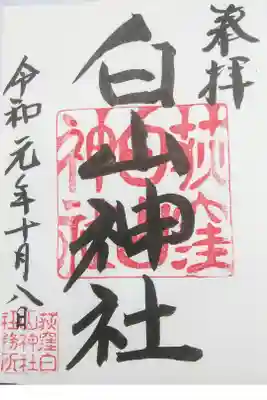 奉拝
白山神社
令和元年十月八日
荻窪
白山
神社
荻窪白
山神社
社務所